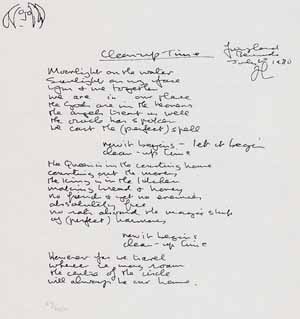 Cleanup Time
Fairylands
Bermuda
July 1980
Moonlight on the water
Sunlight on my face
you & me together
we are in our place
The Gods are in the heavens
the angels treat us well
the oracle has spoken
we cast the (perfect) spell
now it begins - let it begin
clean-up time
The Queen is in the counting house
counting out the money
the King is in the kitchen
making bread & honey
no friends & yet no enemies
absolutely free
no rats aboard the magic ship
of (perfect) harmony
now it begins
clean-up time
However far we travel
wherever we may roam
the centre of the circle
will always be our home.